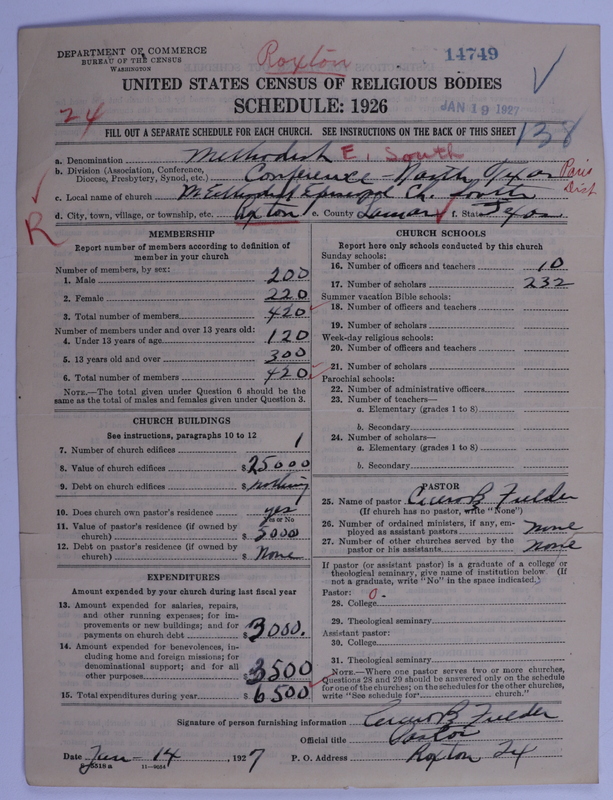 DEPARTMENT OF COMMERCE
BUREAU OF THE CENSUS
WASHINGTON
Roxton
14749
UNITED STATES CENSUS OF RELIGIOUS BODIES
SCHEDULE: 1926
24
JAN 19 1927
138
FILL OUT A SEPARATE SCHEDULE FOR EACH CHURCH. SEE INSTRUCTIONS ON THE BACK OF THIS SHEET
a. Denomination Methodist E. South
b. Division (Association, Conference, Diocese, Presbytery, Synod, etc.) Conference - North Texas Paris Dist
c. Local name of church Methodist Episcopal Ch. South
d. City, town, village, or township, etc. Roxton e. County Lamar f. State Texas
R
MEMBERSHIP
Report number of members according to definition of
member in your church
Number of members, by sex:
1. Male 200
2. Female 220
3. Total number of members 420
Number of members under and over 13 years old:
4. Under 13 years of age 120
5. 13 years old and over 300
6. Total number of members 420
NOTE.—The total given under Question 6 should be the
same as the total of males and females given under Question 3.
CHURCH BUILDINGS
See instructions, paragraphs 10 to 12
7. Number of church edifices 1
8. Value of church edifices $25000
9. Debt on church edifices $nothing
10. Does church own pastor's residence yes
Yes or No
11. Value of pastor's residence (if owned by
church) $5000
12. Debt on pastor's residence (if owned by
church) $None
EXPENDITURES
Amount expended by your church during last fiscal year
13. Amount expended for salaries, repairs,
and other running expenses; for im-
provements or new buildings; and for
payments on church debt $3000.
14. Amount expended for benevolences, in-
cluding home and foreign missions; for
denominational support; and for all
other purposes $3500
15. Total expenditures during year $6500
CHURCH SCHOOLS
Report here only schools conducted by this church
Sunday schools:
16. Number of officers and teachers 10
17. Number of scholars 232
Summer vacation Bible schools:
18. Number of officers and teachers
19. Number of scholars
Week-day religious schools:
20. Number of officers and teachers
21. Number of scholars
Parochial schools:
22. Number of administrative officers
23. Number of teachers—
a. Elementary (grades 1 to 8)
b. Secondary
24. Number of scholars—
a. Elementary (grades 1 to 8)
b. Secondary
PASTOR
25. Name of pastor Cicero B Fielder
(If church has no pastor, write "None")
26. Number of ordained ministers, if any, em-
ployed as assistant pastors none
27. Number of other churches served by the
pastor or his assistants none
If pastor (or assistant pastor) is a graduate of a college or
theological seminary, give name of institution below. (If
not a graduate, write "No" in the space indicated.)
Pastor: 0.
28. College
29. Theological seminary
Assistant pastor:
30. College
31. Theological seminary
NOTE.—Where one pastor serves two or more churches,
Questions 28 and 29 should be answered only on the schedule
for one of the churches; on the schedules for the other churches,
write "See schedule for church."
Signature of person furnishing information Cicero B Fielder
Official title Pastor
Date Jan - 14, 1927 P. O. Address Roxton Tx
11-9054